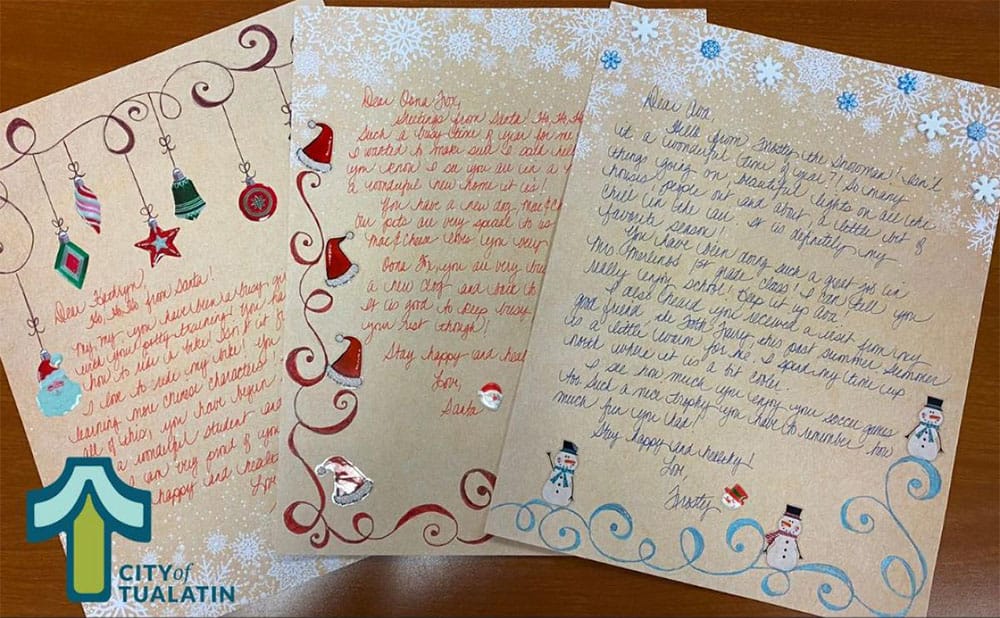 Dear Kathryn,
Ho, Ho, Ho from Santa!
My, my you have been a busy
with your potty training! You
how to ride a bike! Isn't it
I love to ride my bike! You
learning more Chinese characters!
all of this, you have begun
a wonderful student and
I am very proud of you
happy and health
Love
Dear Oona Fox,
Greetings from Santa! Ho, Ho, Ho
Such a busy time of year for me,
I wanted to make sure I said hell
you know I see you are in a
a wonderful new home it is!
You have a new dog, Mac & Ch
Our pets are very special to us
Mac & Cheese loves you very
Oona Fox, you are very
a new dog and
It is good to keep busy
your rest though!
Stay happy and heal
Love,
Santa
Dear Ava,
Hello from Frosty the Snowman! Isn't
it a wonderful time of year?! So many
things going on, beautiful lights on all the
houses, people out and about, a little bit of
chill in the air. It is definitely my
favorite season!
You have been doing such a great job in
Mrs. 1st grade class! I can tell you
really enjoy school! Keep it up Ava!
I also heard you received a visit from my
good friend the Tooth Fairy, this past summer. Summer
is a little warm for me. I spend my time up
north where it is a bit cooler.
I see how much you enjoy your soccer games
too. Such a nice trophy you have to remember how
much fun you had!
Stay happy and healthy!
Love,
Frosty
CITY of
TUALATIN